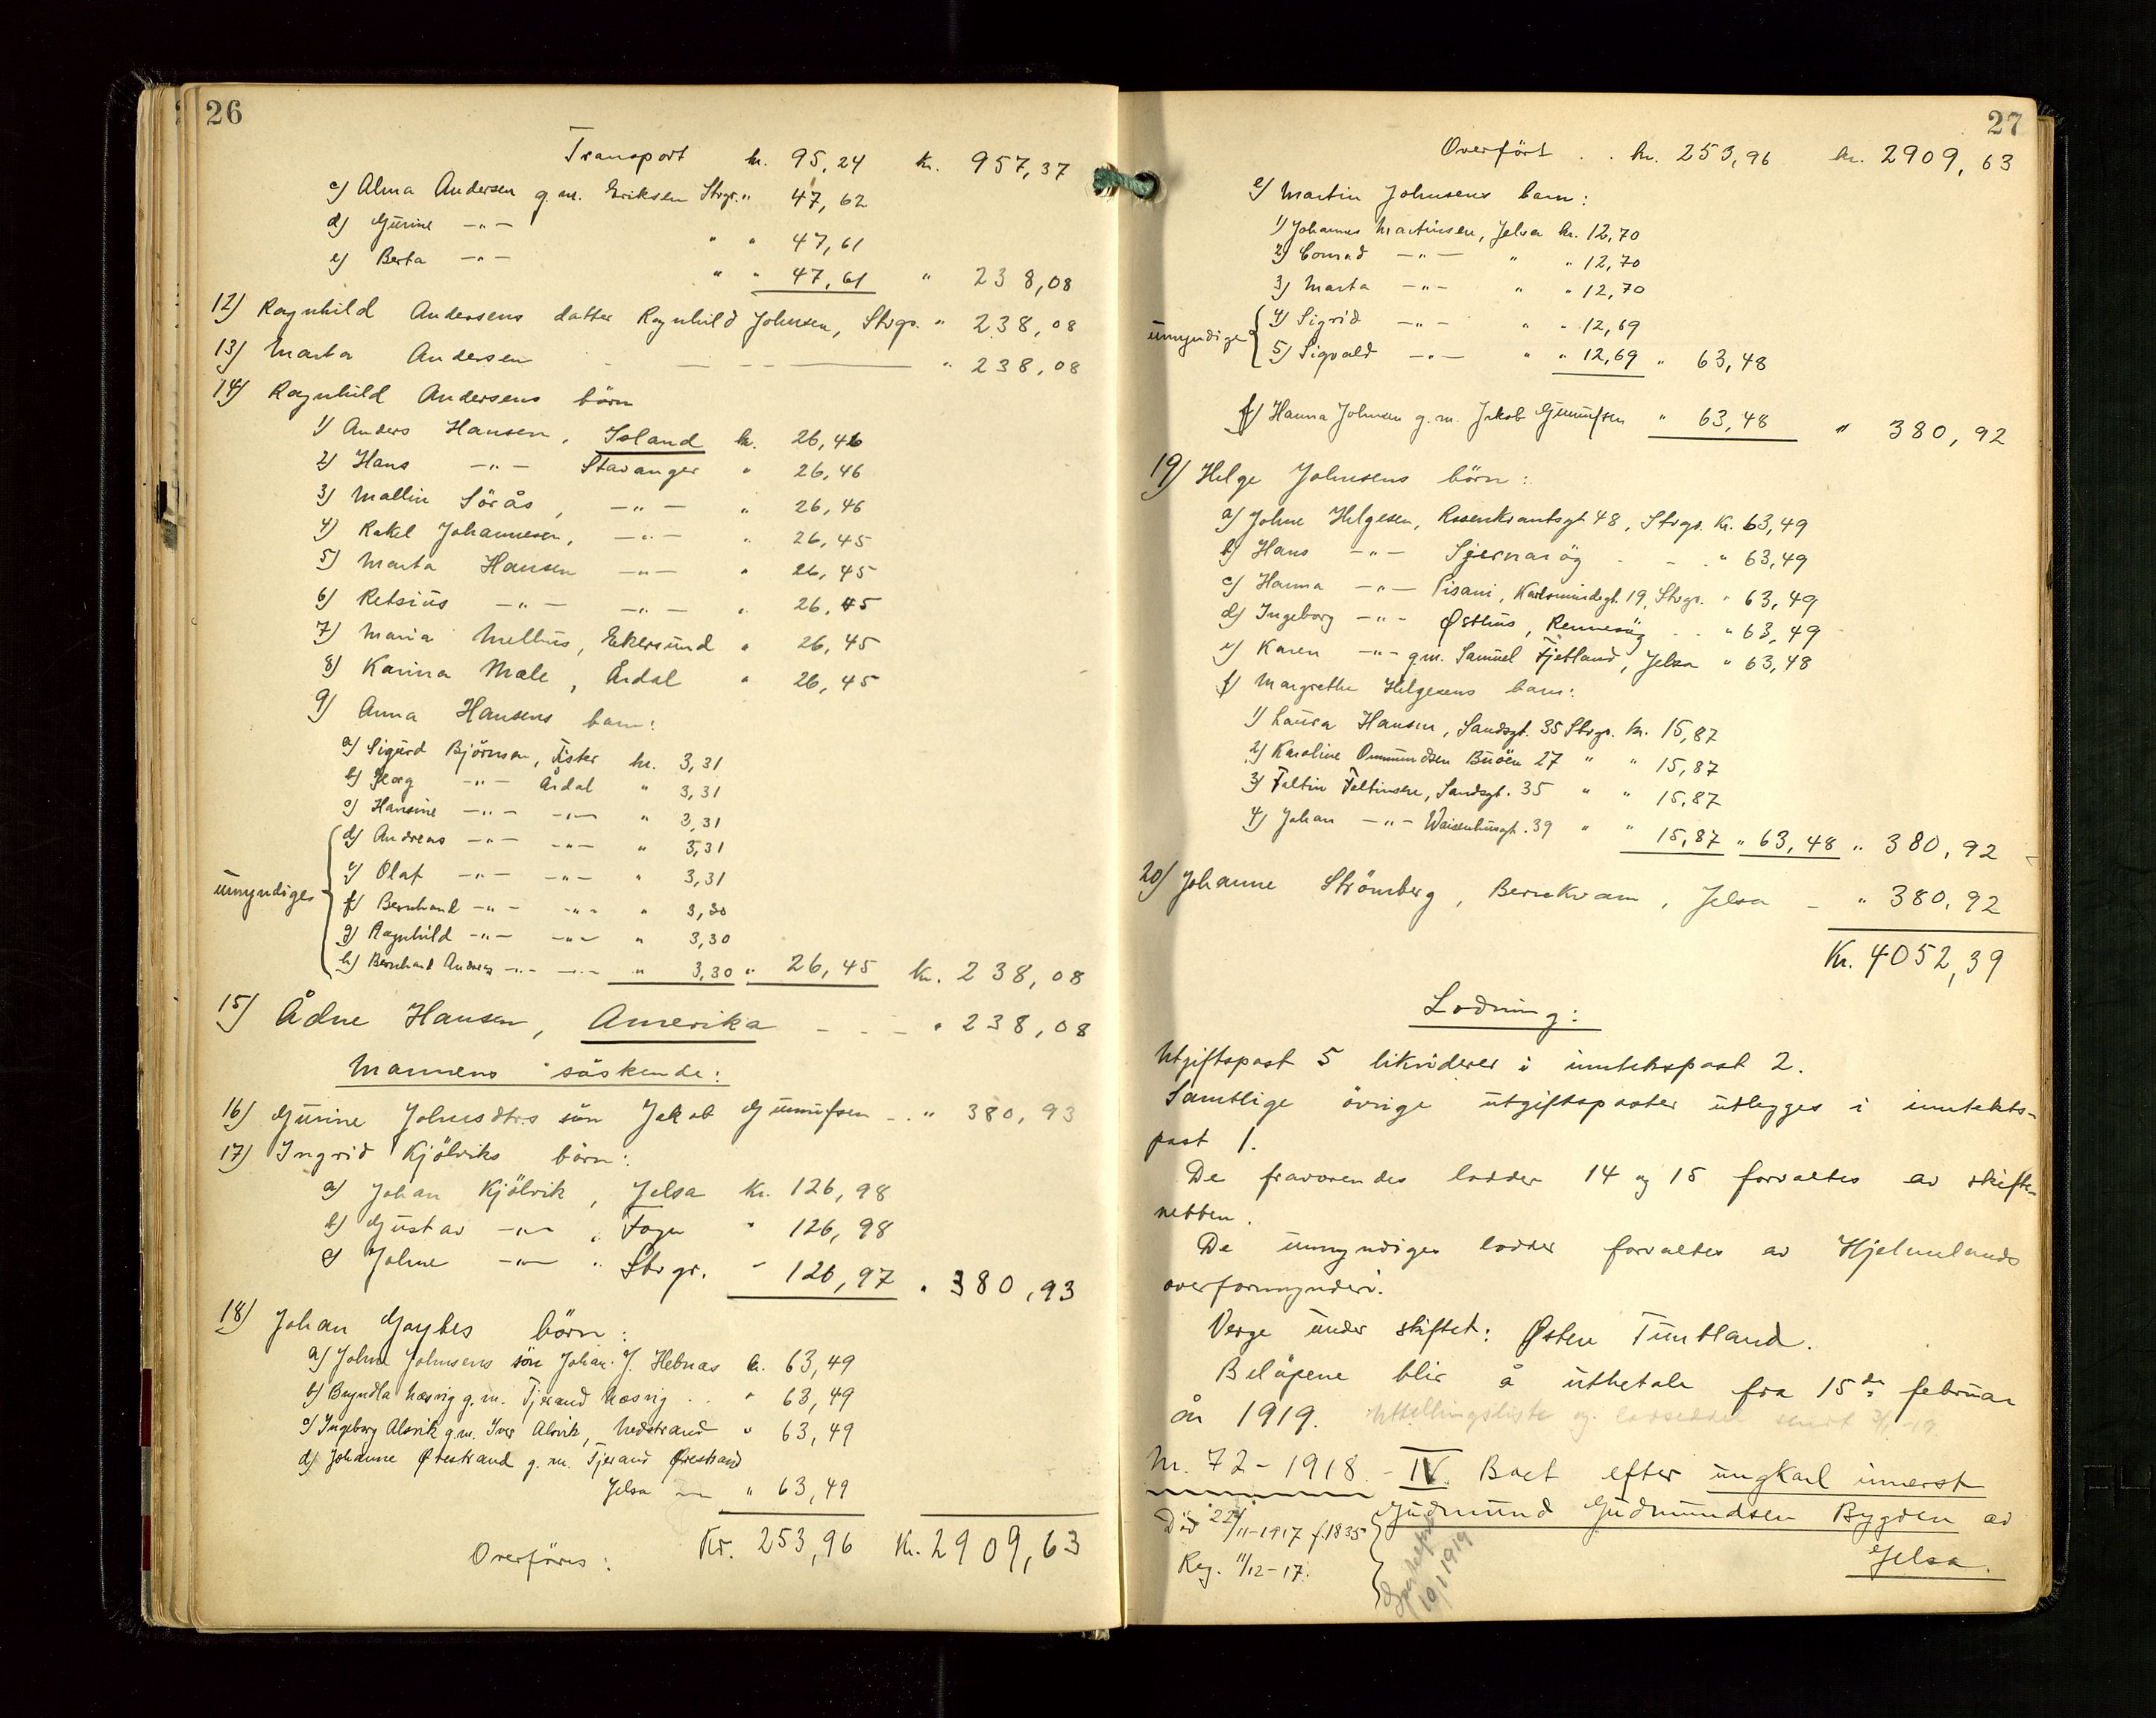 26
Transport kr. 95,24 kr. 957,37
c) Alma Andersen g.m. Eriksen Stvgr. " 47,62
d) Gurine -"- " " 47,61
e) Berta -"- " " 47,61 " 238,08
12) Ragnhild Andersens datter Ragnhild Johnsen, Stvgr. " 238,08
13) Marta Andersen - — -- — " 238,08
14) Ragnhild Andersens börn
1) Anders Hansen, Island kr. 26,46
2) Hans -"- Stavanger " 26,46
3) Mallin Sörås, -"- " 26,46
4) Rakel Johannesen, -"- " 26,45
5) Marta Hansen -"- " 26,45
6) Retsius -"- -"- " 26,45
7) Maria Mellus, Ekersund " 26,45
8) Karina Mæle, Årdal " 26,45
9) Anna Hansens barn:
a) Sigurd Björnsen, Fister kr. 3,31
b) Georg -"- Årdal " 3,31
c) Hansine -"- -"- " 3,31
d) Andreas -"- -"- " 3,31
e) Olaf -"- -"- " 3,31
umyndige { f) Bernhard -"- -"- " 3,30
g) Ragnhild -"- -"- " 3,30
h) Bernhard Andreas -"- -"- " 3,30 " 26,45 kr. 238,08
15) Ådne Hansen, Amerika - - - " 238,08
Mannens söskende:
16) Gurine Johnsdtrs sön Jakob Gunnufsen - . " 380,93
17) Ingrid Kjölviks börn:
a) Johan Kjölvik, Jelsa kr. 126,98
b) Gustav -"- , Fogn " 126,98
c) Johne -"- " Stvgr. " 126,97 " 380,93
18) Johan börn:
a) Johne Johnsens sön Johan J. Hebnæs kr. 63,49
b) Bryndla Næsvig g.m. Tjerand Næsvig . . " 63,49
c) Ingeborg Alsvik g.m. Iver Alsvik, Nedstrand " 63,49
d) Johanne Östestrand g.m. Tjerand Östestrand
Jelsa " 63,49
Kr. 253,96 Kr. 2909,63
Overføres:
27
Overfört . . kr. 253,96 kr. 2909,63
e) Martin Johnsens barn:
1) Johannes Martinsen, Jelsa kr. 12,70
2) Conrad -"- " " 12,70
3) Marta -"- " " 12,70
umyndige { 4) Sigrid -"- " " 12,69
5) Sigvald -"- " " 12,69 " 63,48
f) Hanna Johnsen g.m. Jakob Gunnufsen " 63,48 " 380,92
19) Helge Johnsens börn:
a) Johne Helgesen, Rosenkrantsgt 48, Stvgr. kr. 63,49
b) Hans -"- Sjernaröy - - " 63,49
c) Hanna -"- Pisani, Karlsmindegt. 19, Stvgr. " 63,49
d) Ingeborg -"- Østhus, Rennesöy . . " 63,49
e) Karen -"- g.m. Samuel Fjetland, Jelsa " 63,48
f) Margrethe Helgesens barn:
1) Laura Hansen, Sandsgt. 35 Stvgr. kr. 15,87
2) Karoline Ommundsen Buöen 27 " " 15,87
3) Feltin Feltinsen, Sandsgt. 35 " " 15,87
4) Johan -"- Waisenhusgt. 39 " " 15,87 " 63,48 " 380,92
20) Johanne Strömberg, Berekvam, Jelsa - " 380,92
Kr. 4052,39
Lodning:
Utgiftspost 5 likviderer i inntektspost 2.
Samtlige övrige utgiftsposter utlegges i inntekts-
post 1.
De fraværendes lodder 14 og 15 forvaltes av skifte-
retten.
De umyndiges lodder forvaltes av Hjelmelands
overformynderi.
Verge under skiftet: Østen Tuntland.
Belöpene blir å utbetale fra 15de februar
år 1919. Utstillingsliste og loddseddel sendt 3/1-19.
Nr. 72 - 1918 - IV. Boet efter ungkarl innerst
Död 22/11-1917 f. 1835 } Gudmund Gudmundsen Bygden av
Reg. 11/12-17. Jelsa.
10/1 1919